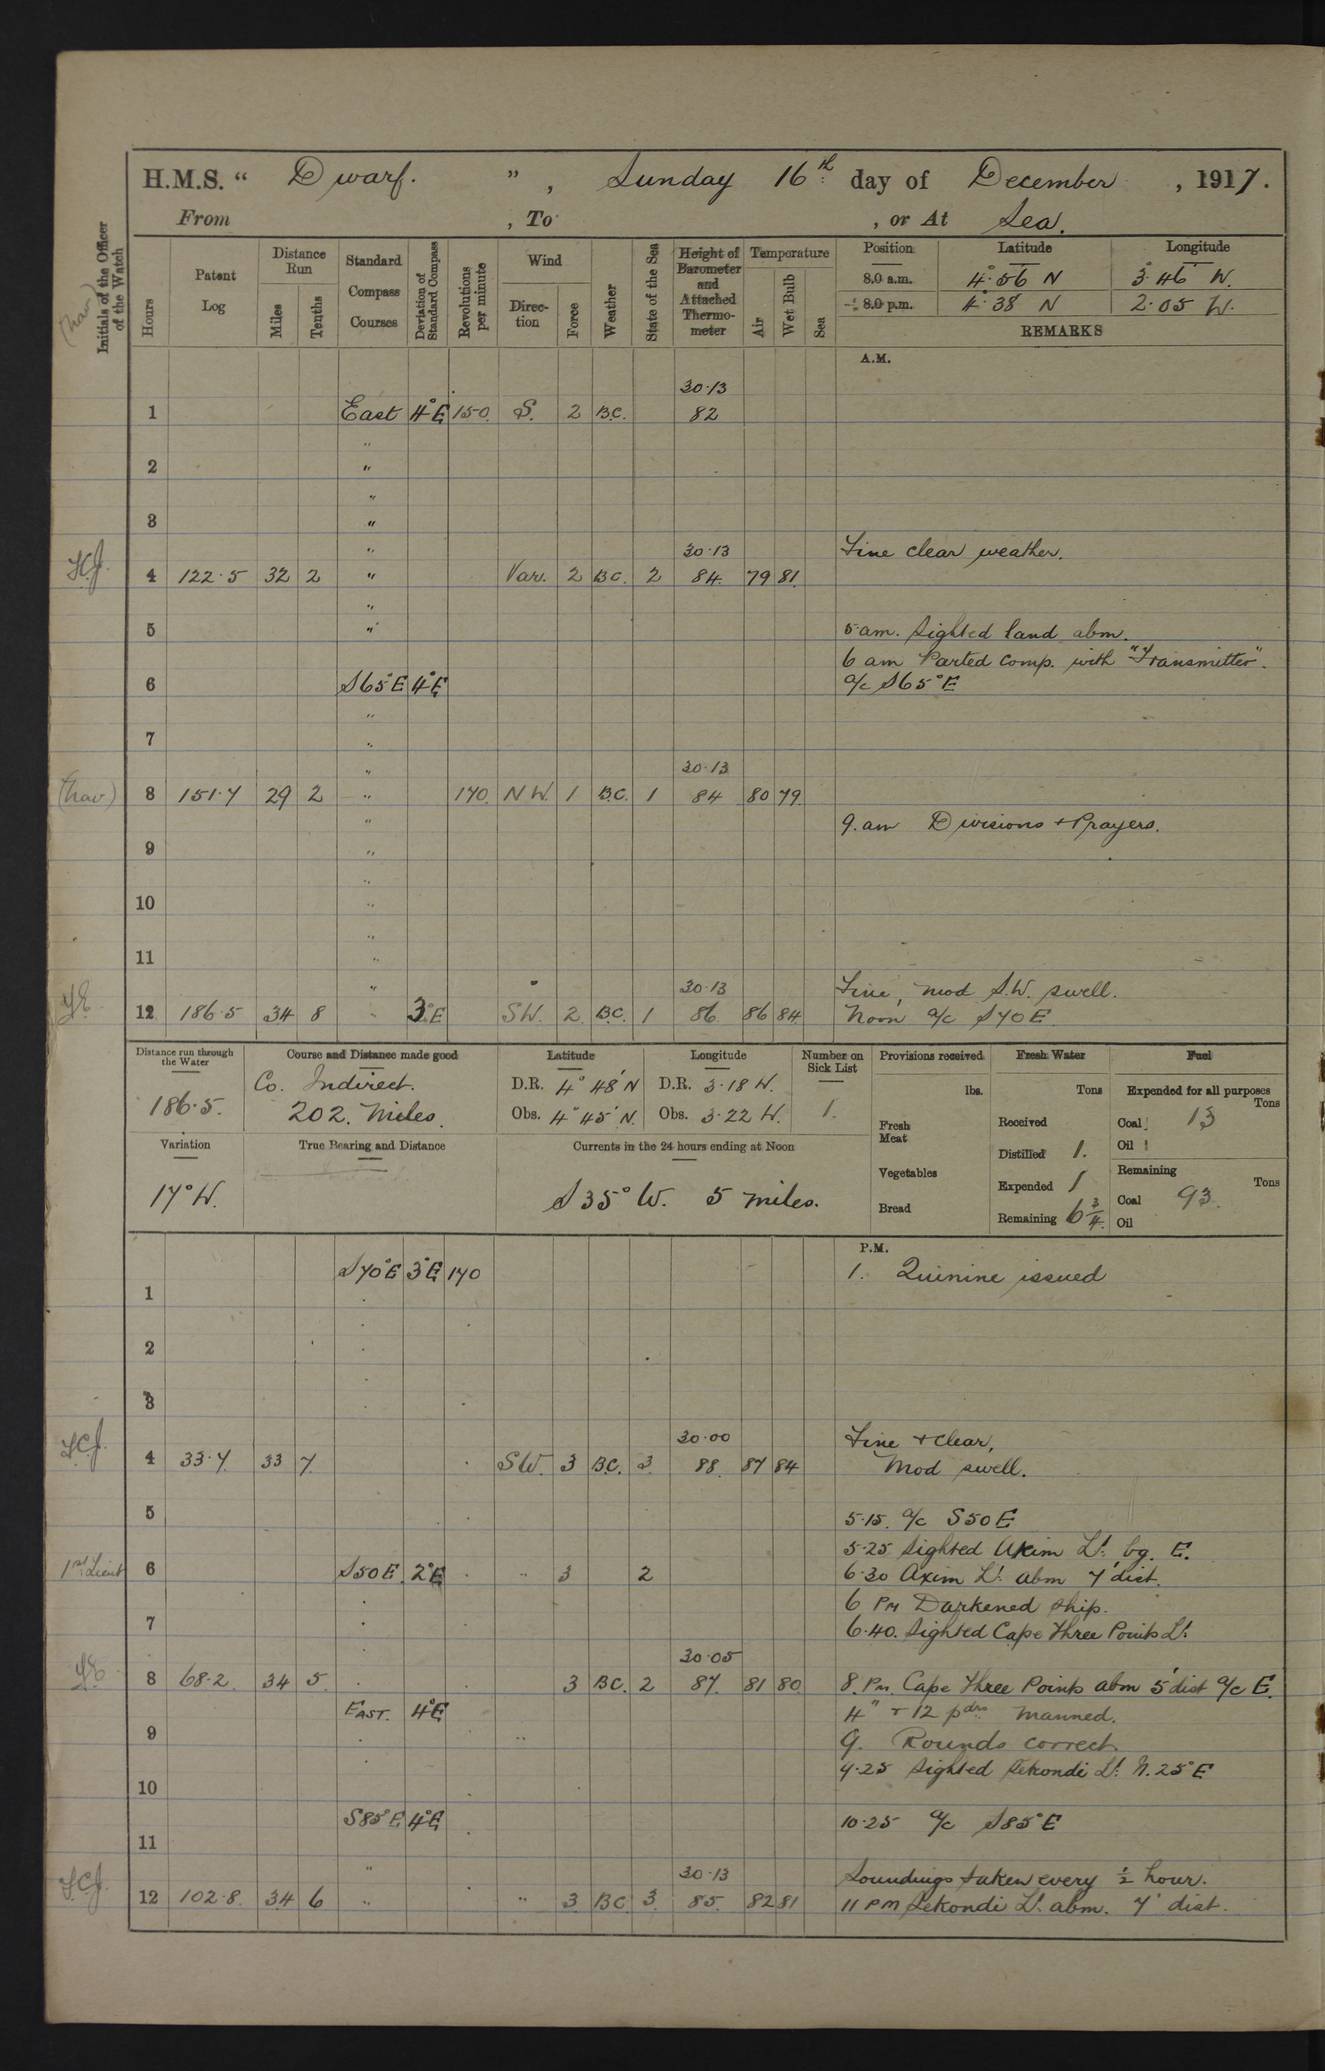 H.M.S. " Dwarf. " , Sunday 16th day of December , 1917.
From , To , or At Sea.
Initials of the Officer of the Watch
(Nav)
Hours
Patent Log
Distance Run
Miles
Tenths
Standard Compass Courses
Deviation of Standard Compass
Revolutions per minute
Wind
Direction
Force
Weather
State of the Sea
Height of Barometer and Attached Thermometer
Temperature
Air
Wet Bulb
Sea
Position Latitude Longitude
8.0 a.m. 4°·56 N 3°·46' W.
8.0 p.m. 4°·38 N 2·05 W.
REMARKS
A.M.
30·13
1 East 4°E 150 S. 2 B.C. 82
"
2 "
"
3 "
" 30·13 Fine clear weather.
4 122·5 32 2 " Var. 2 B.C. 2 84 79 81
"
5 " 5 am. Sighted land abm.
6 am Parted comp. with "Transmitter".
6 S65°E 4°E a/c S65°E
"
7 "
" 30·13
(Nav) 8 151·7 29 2 " 170 N W. 1 B.C. 1 84 80 79
" 9. am Divisions + Prayers.
9 "
"
10 "
"
11 "
" 30·13 Fine, mod S.W. swell.
12 186·5 34 8 3°E SW. 2 B.C. 1 86 86 84 Noon a/c S70E
Distance run through the Water
186·5.
Course and Distance made good
Co. Indirect.
202. Miles.
Latitude
D.R. 4° 48' N
Obs. 4° 45' N.
Longitude
D.R. 3·18 W.
Obs. 3·22 W.
Number on Sick List
1.
Provisions received
lbs.
Fresh Meat
Vegetables
Bread
Fresh Water
Tons
Received
Distilled 1.
Expended 1
Remaining 6 3/4
Fuel
Expended for all purposes
Tons
Coal 13
Oil
Remaining
Tons
Coal 93.
Oil
Variation
17°W.
True Bearing and Distance
Currents in the 24 hours ending at Noon
S 35° W. 5 miles.
P.M.
S70°E 3°E 170 1. Quinine issued
1
2
3
30·00 Fine + clear,
4 33·7 33 7 SW. 3 B.C. 3 88 87 84 Mod swell.
5 5·15. a/c S50E
5·25 Sighted Axim Lt. bg. E.
1st Lieut 6 S50E. 2°E " 3 2 6·30 Axim Lt. abm 7' dist.
6 PM Darkened ship.
7 6·40. Sighted Cape Three Points Lt.
30·05
8 68·2. 34 5 3 B.C. 2 87. 81 80 8. Pm. Cape Three Points abm 5' dist a/c E.
EAST. 4°E 4" + 12 pdrs manned.
9 " 9. Rounds correct.
9·25 Sighted Sekondi Lt. N.25°E
10
S85°E 4°E 10·25 a/c S85°E
11
" 30·13 Soundings taken every 1/2 hour.
12 102·8. 34 6 " " 3 B.C. 3. 85. 82 81 11 PM Sekondi Lt. abm. 7' dist.